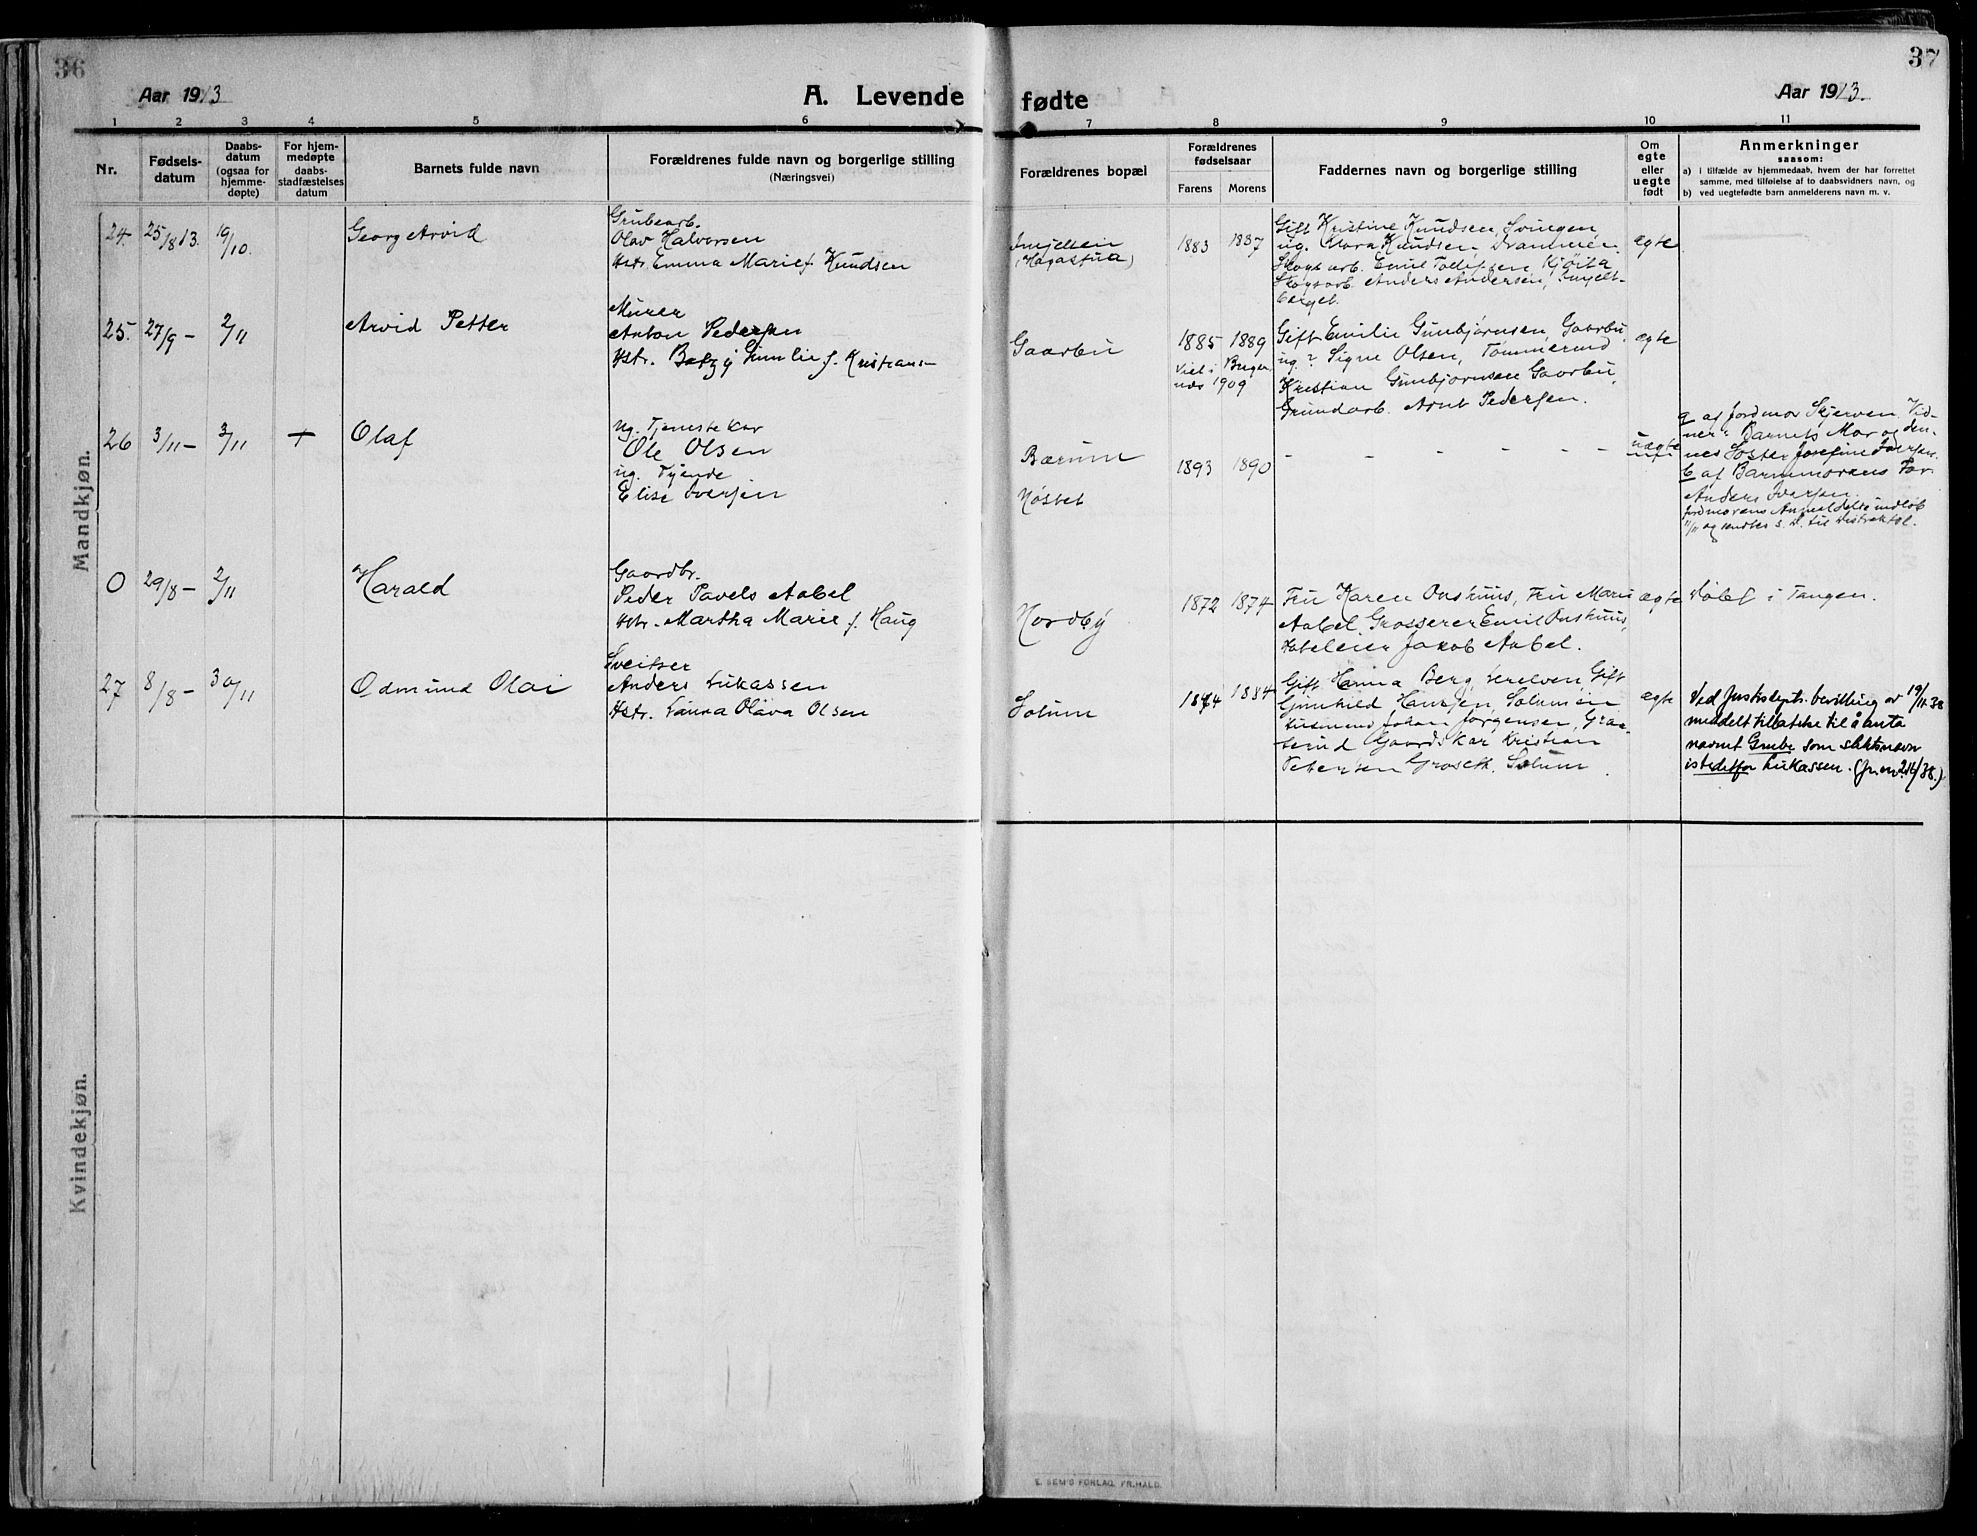 36
37
Aar 1913
A. Levende
fødte
Aar 1913.
1 2 3 4 5 6
7 8 9 10 11
Nr.
Fødsels-
datum
Daabs-
datum
(ogsaa for
hjemme-
døpte)
For hjem-
medøpte
daabs-
stadfæstelses
datum
Barnets fulde navn
Forældrenes fulde navn og borgerlige stilling
(Næringsvei)
Forældrenes bopæl
Forældrenes
fødselsaar
Farens Morens
Faddernes navn og borgerlige stilling
Om
egte
eller
uegte
født
Anmerkninger
saasom:
a) i tilfælde av hjemmedaab, hvem der har forrettet
samme, med tilføielse af to daabsvidners navn, og
b) ved uegtefødte barn anmelderens navn m. v.
Mandkjøn.
24. 25/8 13. 19/10. Georg Arvid
Grubearb.
Olav Halvorsen
Hstr. Emma Marie f. Knudsen
(Hagastua)
1883 1887
Gift Kristine Knudsen, Svingen,
ug. Klara Knudsen, Drammen.
Skogsarb. Emil Tollefsen, Kjøita
Skogsarb. Anders Andersen,
berget.
egte
25. 27/9 – 2/11 Arvid Petter
Murer
Anton Pedersen
Hstr. Betzy f. Kristians–
Gaarbu
1885 1889
Viet i
1909
Gift Emilie Gunbjørnsen, Gaarbu,
ug.? Signe Olsen, Tømmerund
Kristian Gunbjørnsen Gaarbu,
Grundarb. Arnt Pedersen.
egte
26 3/11 – 3/11 + Olaf
Ug. Tjenestekar
Ole Olsen
ug. Tyende
Elise Iversen
Bærum
Nøstet
1893 1890
– – – – –
uegte
a af Jordmor Skjerven. Vid-
ner: Barnets Mor og den-
nes Søster Josefine Iversen.
b af Barnmorens Far
Anders Iversen.
Jordmorens Anmeldelse indløb
O 29/8 – 2/11 Harald
Gaardbr.
Peder Pavels Aabel
Hstr. Martha Marie f. Haug
Nordby
1872 1874
Fru Karen Onshuus, Fru Marie
Aabel, Grosserer Emil Onshuus,
Jakob Aabel.
egte
Døbt i Tangen.
27 8/8 – 30/11 Odmund Olai
Sveitser
Anders Lukassen
Hstr. Laura Olava Olsen
Solum
1884
Gift Hanna Berg, Gift
Gunhild Hansen, Solum
Husmand Johan Jørgensen, Graa-
serud Gaardskar Kristian
Petersen Groseth. Solum
egte
Ved Justisdepts. bevilling av 19/11.38
meddelt tillatelse til å anta
navnet Grube som slektsnavn
istedetfor Lukassen. (jr. nr. 216/38.)
Kvindekjøn.
E. SEM'S FORLAG, FR.HALD.